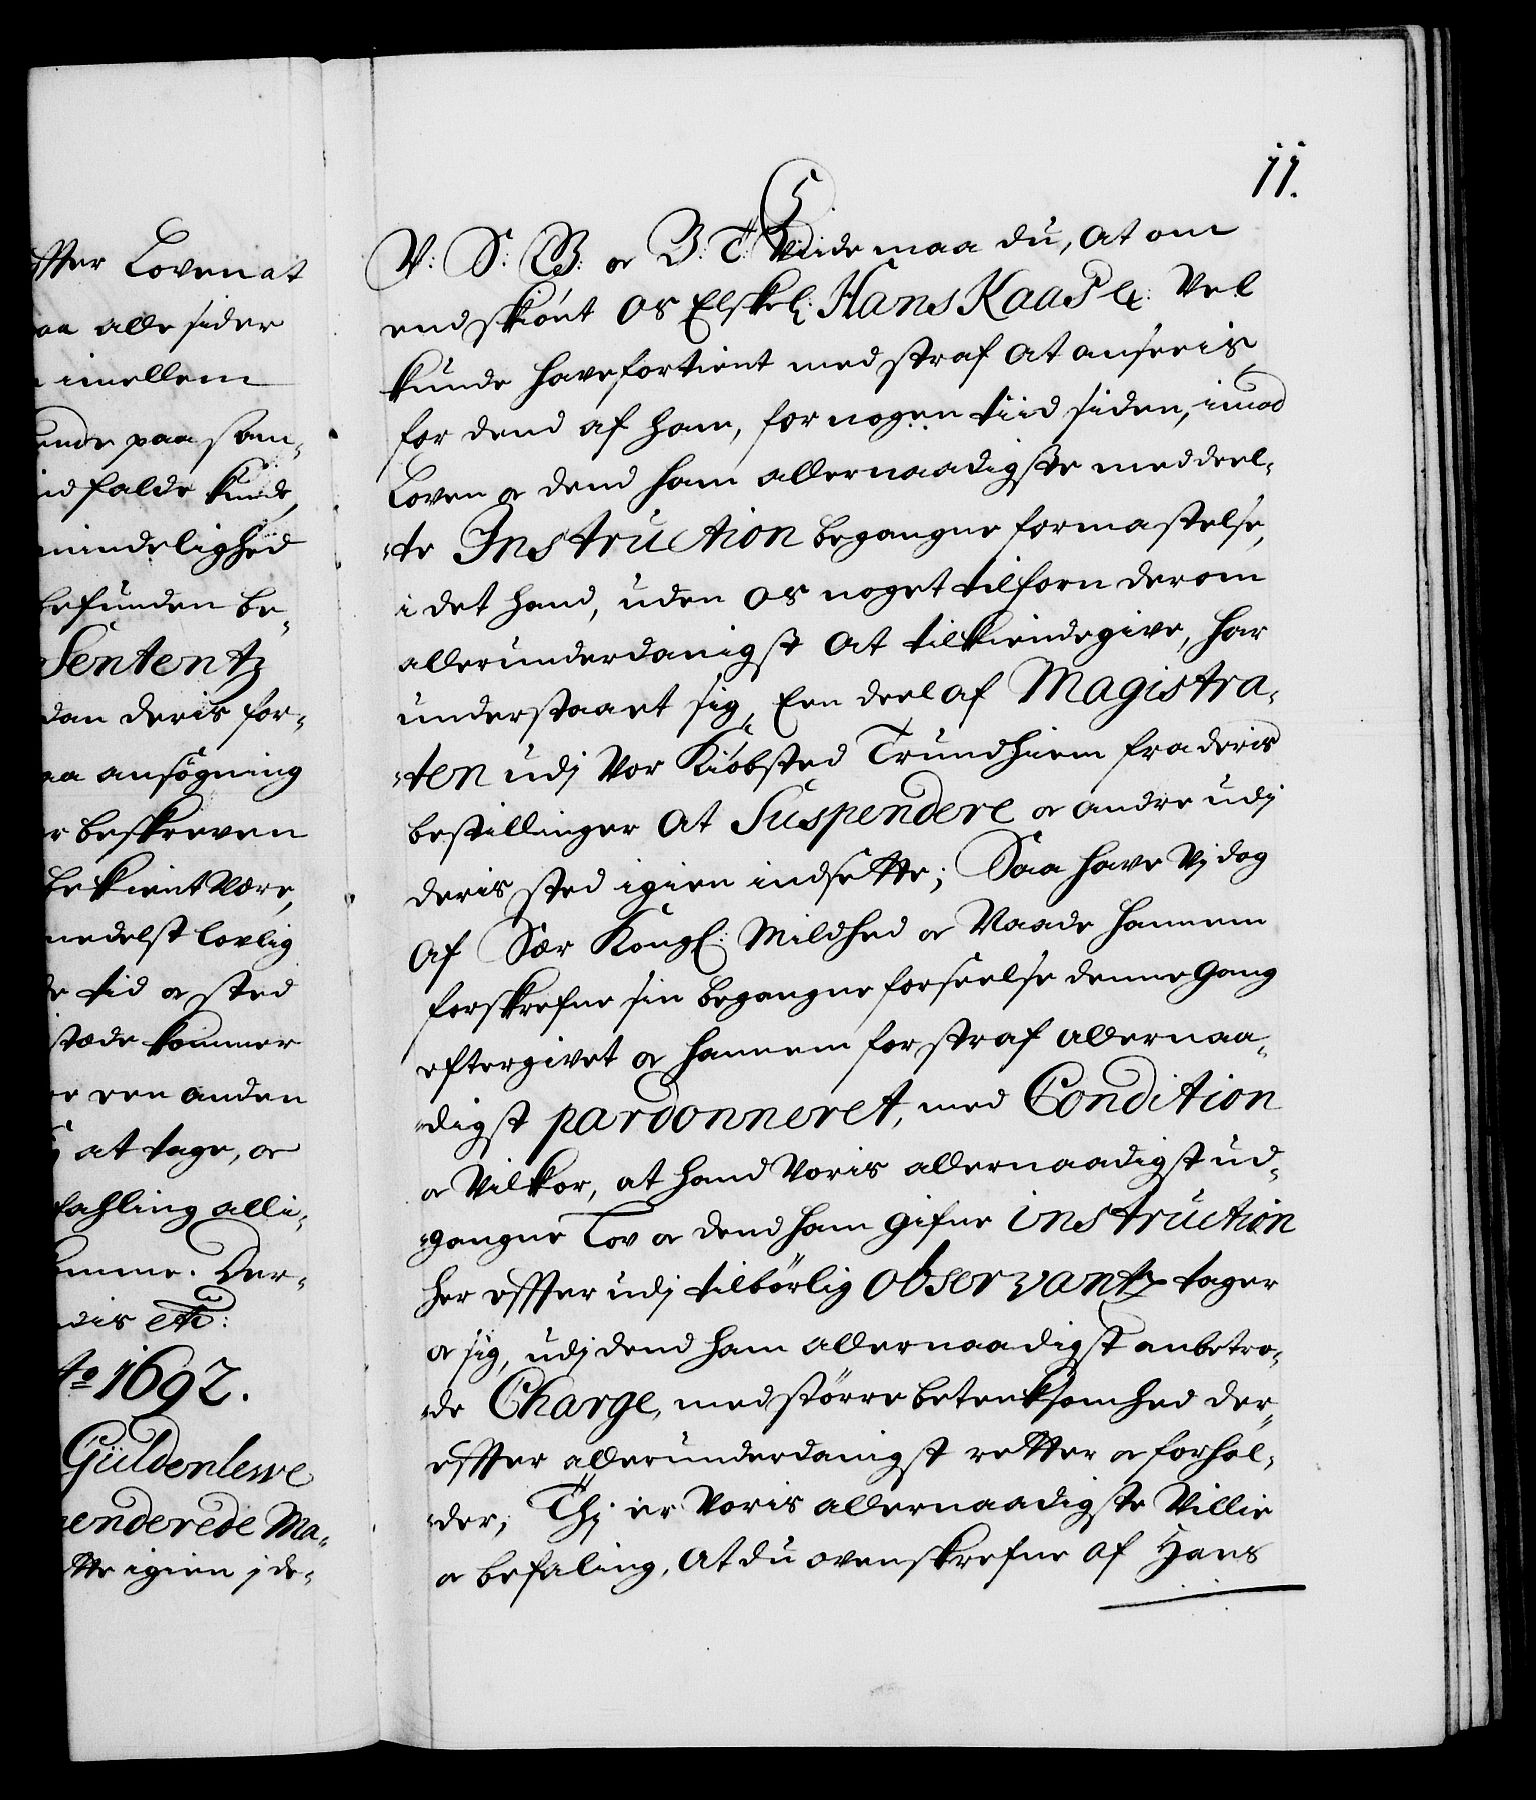 ffter Loven at
aa alle sider
imellem
ende paa som-
id falde kunde,
mindelighed
befunden be-
Sententz
dan deris for-
aa ansøgning
r beskreven
bekient være,
medelst lovlig
de tid oc sted
stæde kommer
een anden
at tage, oc
fahling alli-
Der-
dis etc:
to 1692.
Güldenlewe
enderede Ma-
tte igien i de-
11.
V: S: G: B: oc G: T: Viide maa du, at om
endskiönt os Elskel: Hans Kaas etc: vel
kunde have fortient med straf at anseeis
for dend af ham, for nogen tiid siden, imod
Loven oc dend ham allernaadigste meddeel-
-te Instruction begangne formastelse,
i det hand, uden os noget tilforn derom
allerunderdanigst at tilkiendegive, har
understaaet sig, Een deel af Magistra-
-ten udj vor Kiöbsted Trundhiem fra deris
bestillinger at Suspendere oc andre udj
deris sted igien indsette; Saa have Vj dog
af Sær Kongl: Mildhed oc Naade hannem
forskrefne sin begangne forseelse denne gang
eftergivet oc hannem for straf allernaa-
-digst pardonneret, med Condition
oc Vilkor, at hand Voris allernaadigst ud-
-gangne Lov oc dend ham gifne instruction
her effter udj tilbörlig observantz tager
oc sig, udj dend ham allernaadigst anbetro-
-de Charge, med större betenksomhed der-
effter allerunderdanigst retter oc forhol-
-der; Thj er Voris allernaadigste Villie
oc befaling, at du ovenskrefne af Hans